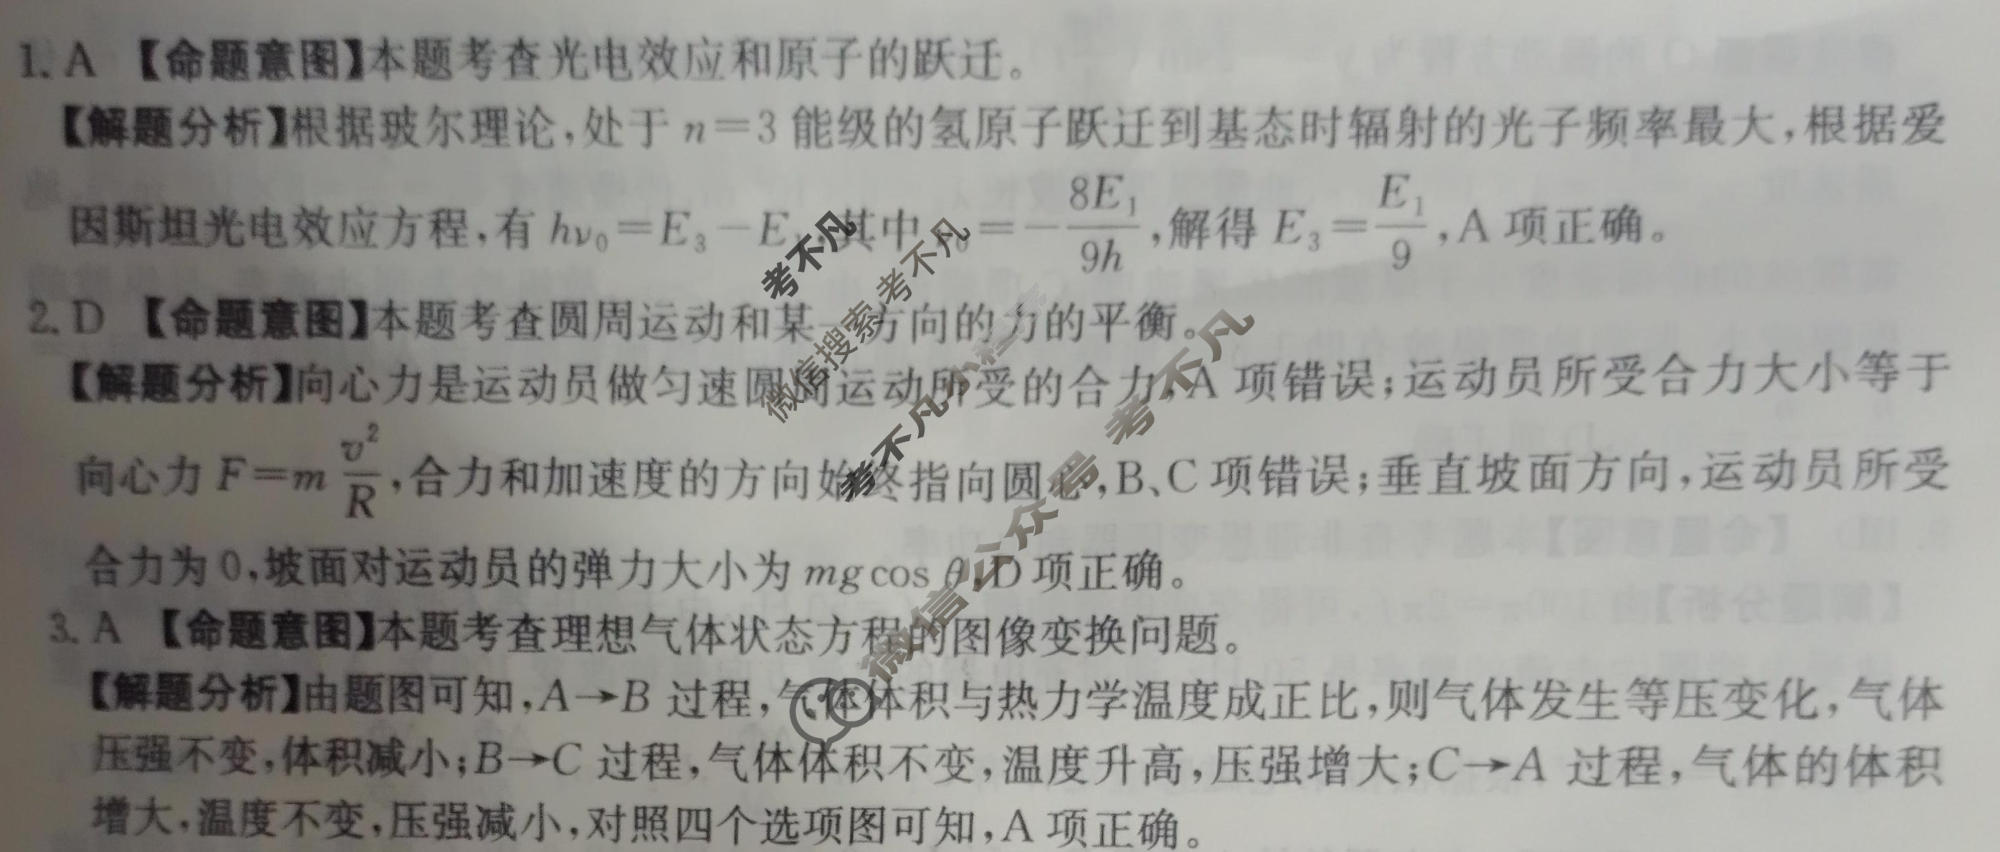 1. A 【命题意图】本题考查光电效应和原子的跃迁。
【解题分析】根据玻尔理论,处于 n=3 能级的氢原子跃迁到基态时辐射的光子频率最大,根据爱
因斯坦光电效应方程,有 hν₀=E₃-E ,其中 ₀=-8E₁/9h,解得 E₃=E₁/9,A 项正确。
2. D 【命题意图】本题考查圆周运动和某一方向的力的平衡。
【解题分析】向心力是运动员做匀速圆周运动所受的合力,A 项错误;运动员所受合力大小等于
向心力 F=m v²/R,合力和加速度的方向始终指向圆 ,B、C 项错误;垂直坡面方向,运动员所受
合力为 0,坡面对运动员的弹力大小为 mgcos θ,D 项正确。
3. A 【命题意图】本题考查理想气体状态方程的图像变换问题。
【解题分析】由题图可知,A→B 过程,气体体积与热力学温度成正比,则气体发生等压变化,气体
压强不变,体积减小;B→C 过程,气体体积不变,温度升高,压强增大;C→A 过程,气体的体积
增大,温度不变,压强减小,对照四个选项图可知,A 项正确。
考不凡
微信搜索 考不凡
考不凡小程序
微信公众号 考不凡